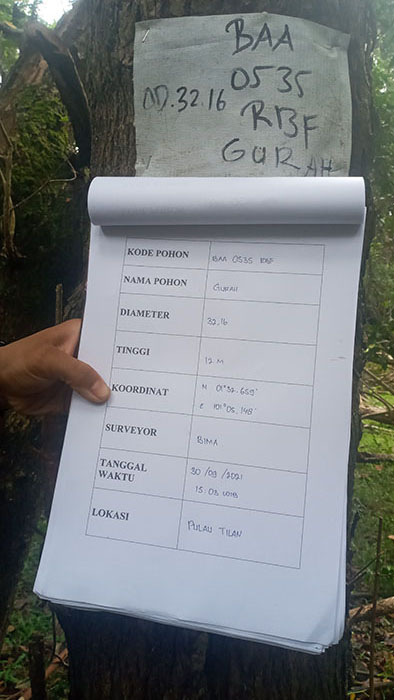 BAA
0535
OD.32.16
RBF
GURAH
KODE POHON BAA 0535 RBF
NAMA POHON GURAH
DIAMETER 32,16
TINGGI 12 M
KOORDINAT N 01°32.659'
E 101°05.148'
SURVEYOR BIMA
TANGGAL 30/09/2021
WAKTU 15.03 WIB
LOKASI PULAU TILAN